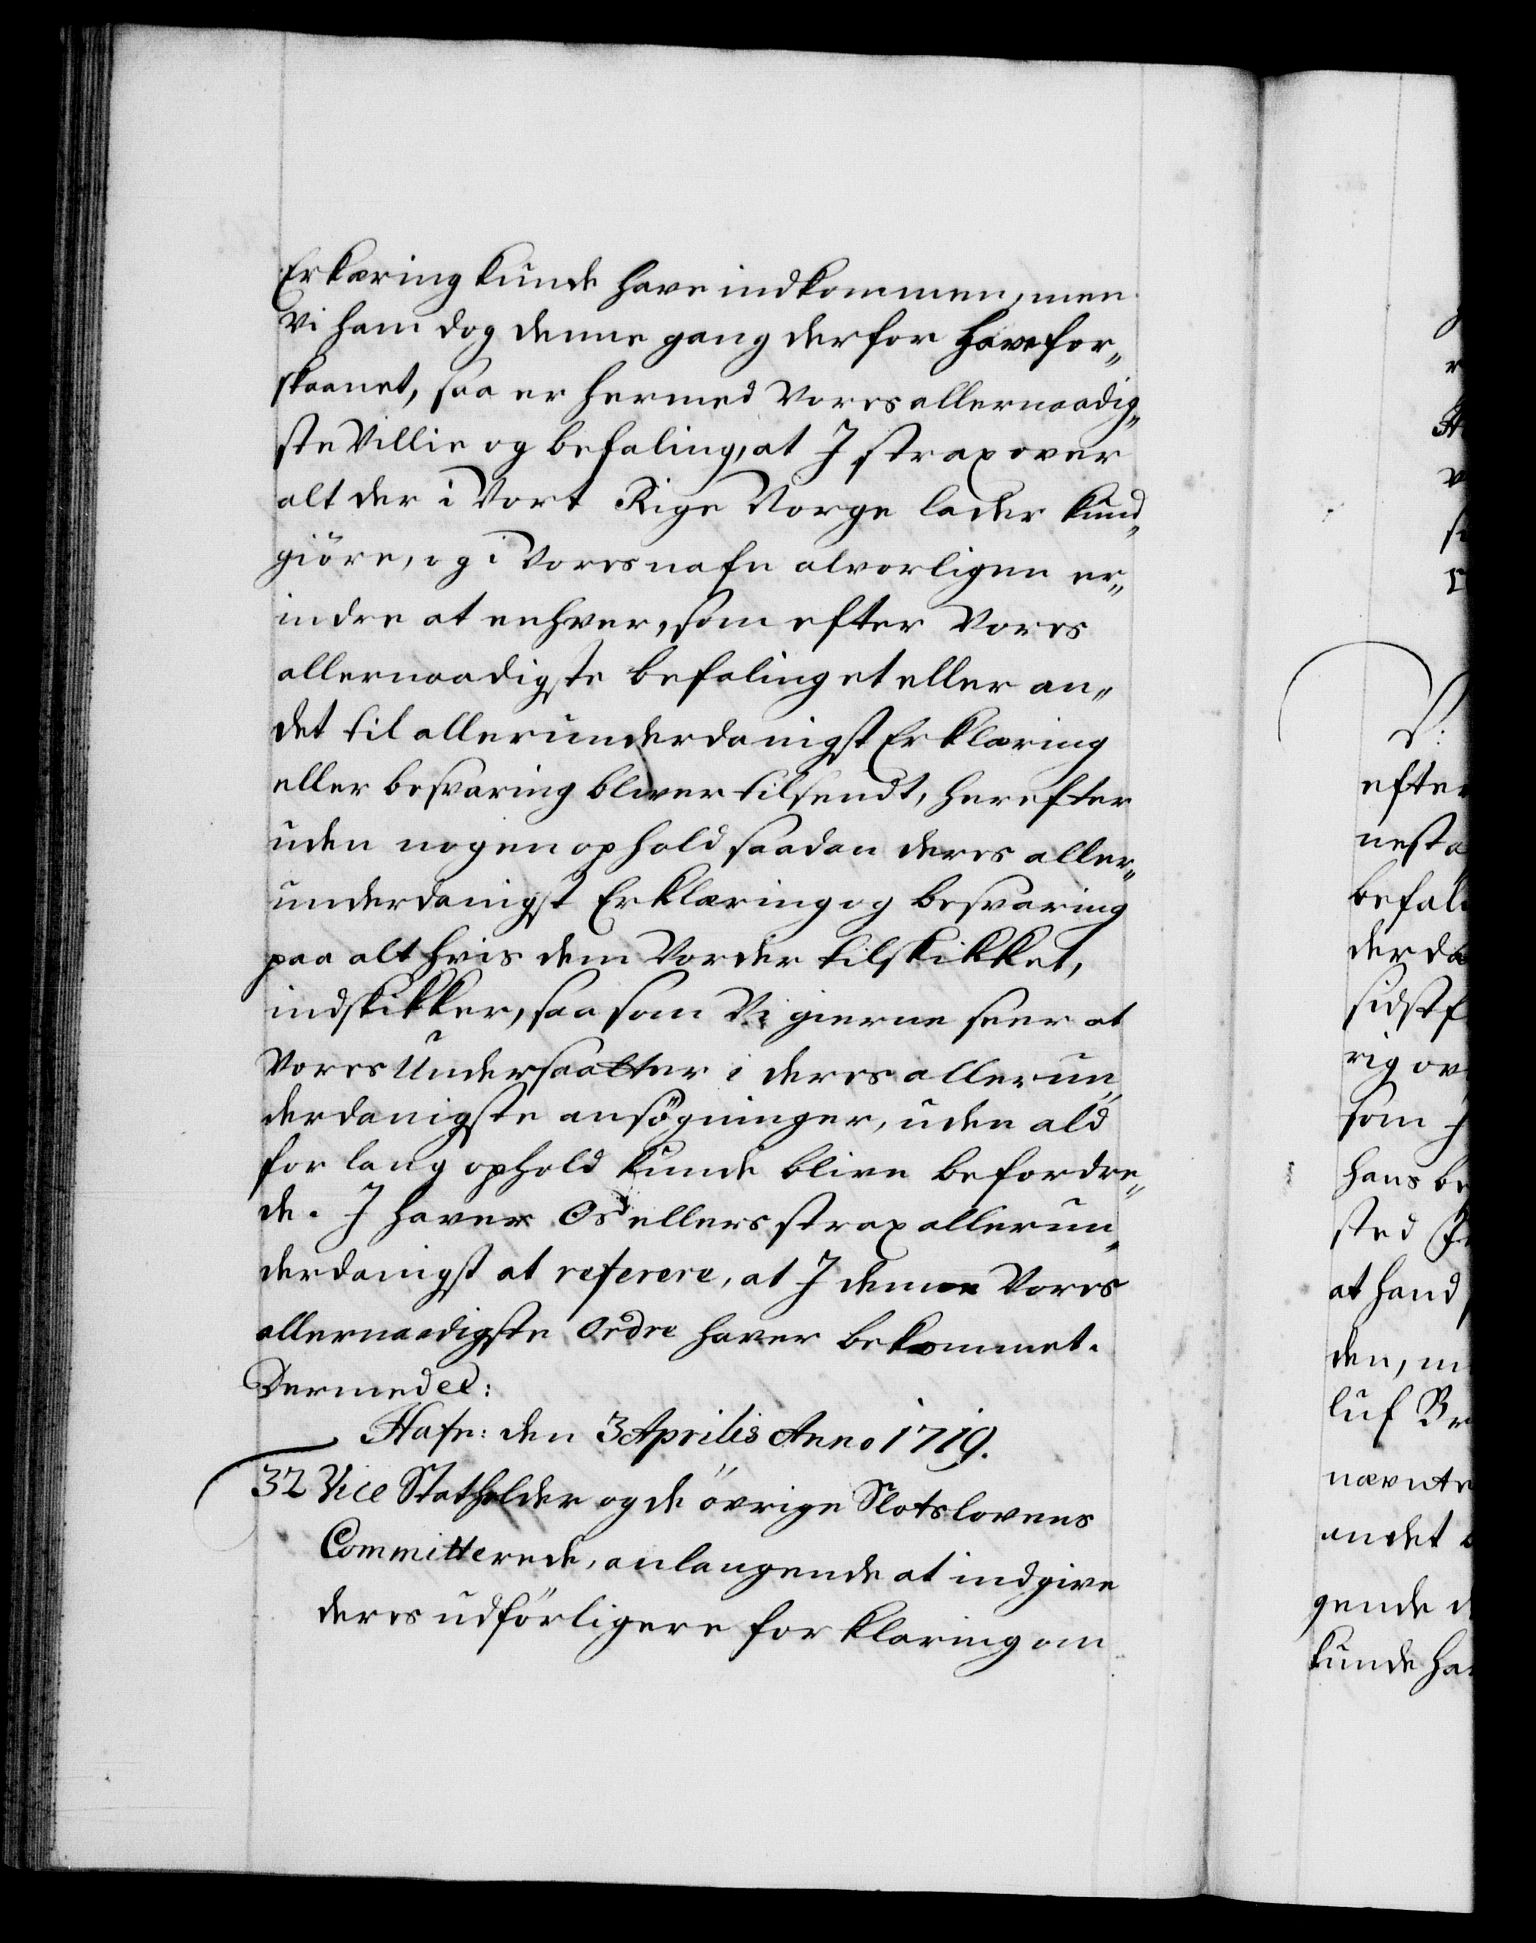 Erklæring kunde have indkommen, men
Vi ham dog denne gang derfor have for„
skaanet, saa er hermed Vores allernaadig„
ste Villie og befaling, at I strax over
alt der i Vort Rige Norge lader kund„
giöre, og i Vores nafn alvorligen er„
indre at enhver, som efter Vores
allernaadigste befaling et eller an„
det til allerunderdanigst Erklæring
eller besvaring bliver tilsendt, herefter
uden nogen ophold saadan deres aller„
underdanigst Erklæring og besvaring
paa alt hvis dem Vorder tilskikket,
indskikker, saasom Vi gierne seer at
Vores Undersaatter i deres allerun„
derdanigste ansögninger, uden ald
for lang ophold kunde blive befordre„
de. I haver Os ellers strax allerun„
derdanigst at referere, at I denne Vores
allernaadigste Ordre haver bekommet.
Dermed ex:
Hafn: den 3 Aprilis Anno 1719.
32 Vice Statholder og de övrige Slotslovens
Committerede, anlangende at indgive
deres udförligere forklaring om
efter
befal
derda
rig ov
som J
hans be
sted
at hand
den, m
luf Br
nævnte
andet
gende d
kunde ha